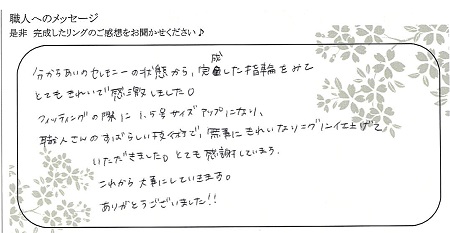 職人へのメッセージ
是非 完成したリングのご感想をお聞かせください♪
分かちあいのセレモニーの状態から、完成した指輪をみて
とてもきれいで感激しました。
フィッティングの際に1.5号サイズアップになり、
職人さんのすばらしい技術で、無事にきれいなリングに仕上げて
いただきました。とても感謝しています。
これから大事にしていきます。
ありがとうございました!!